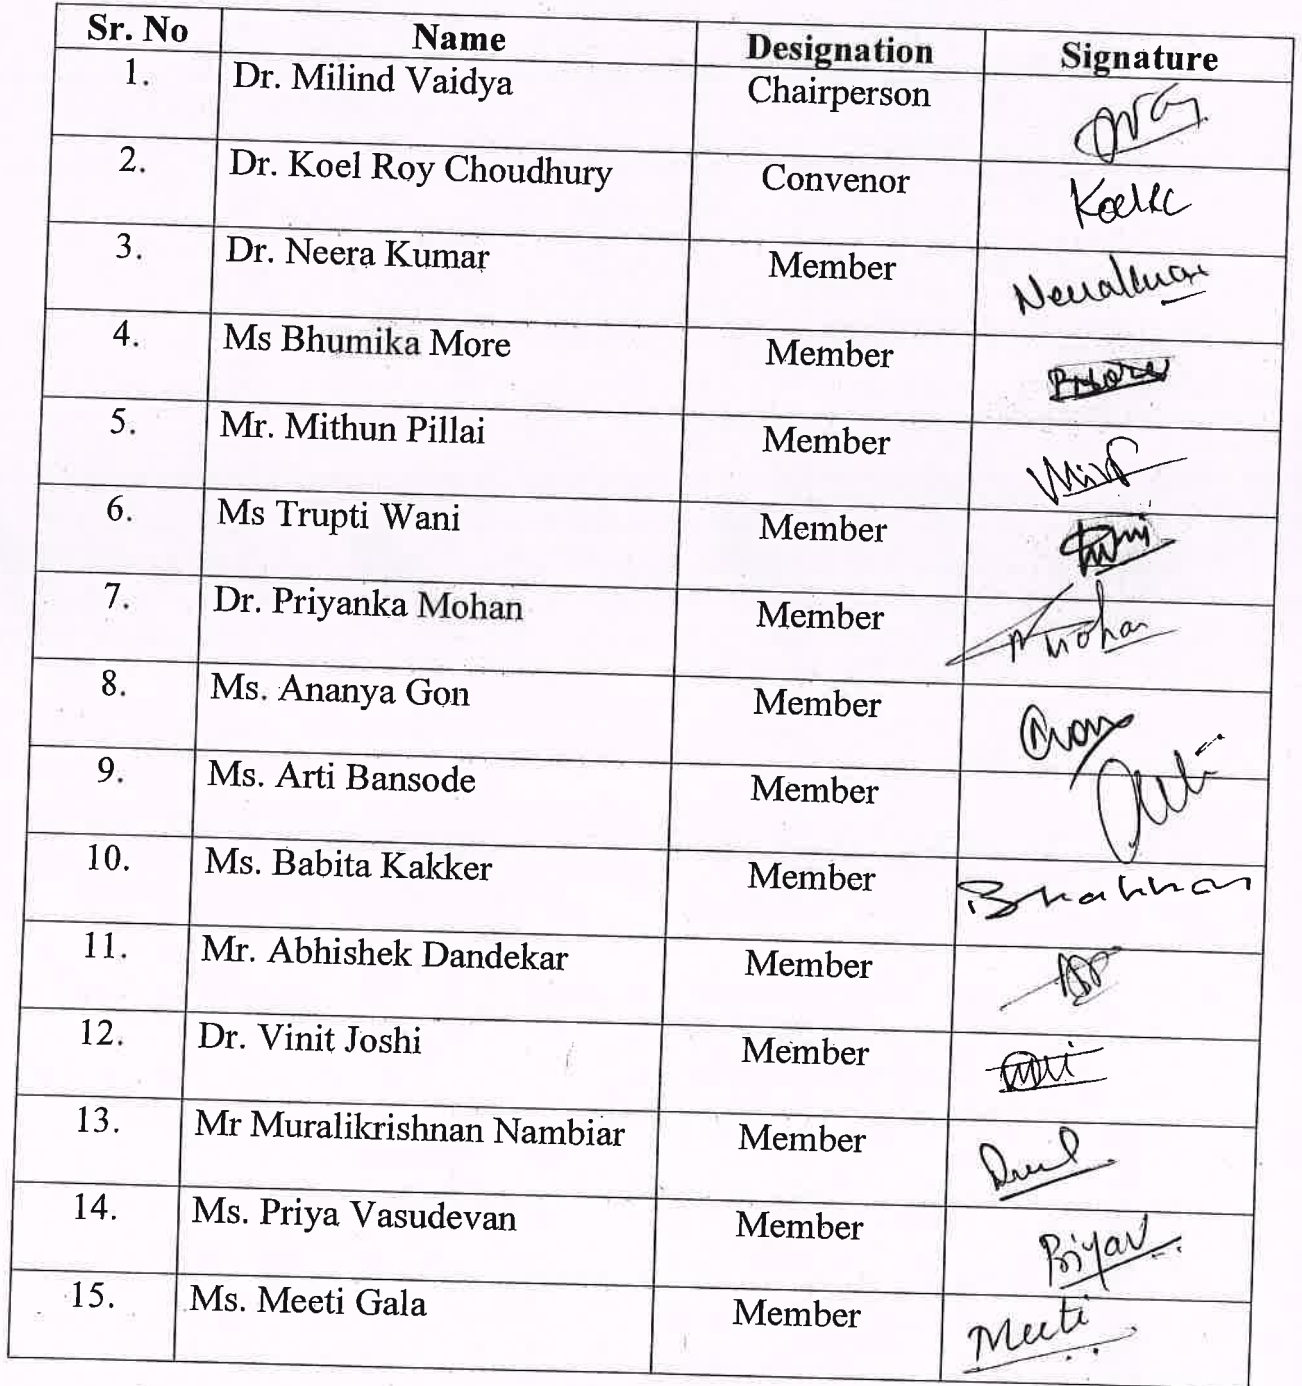 Sr. No Name Designation Signature
1. Dr. Milind Vaidya Chairperson
2. Dr. Koel Roy Choudhury Convenor KoelRC
3. Dr. Neera Kumar Member Neerakumar
4. Ms Bhumika More Member BMore
5. Mr. Mithun Pillai Member
6. Ms Trupti Wani Member
7. Dr. Priyanka Mohan Member Mohan
8. Ms. Ananya Gon Member
9. Ms. Arti Bansode Member Arti
10. Ms. Babita Kakker Member
11. Mr. Abhishek Dandekar Member
12. Dr. Vinit Joshi Member
13. Mr Muralikrishnan Nambiar Member
14. Ms. Priya Vasudevan Member PriyaV
15. Ms. Meeti Gala Member Meeti